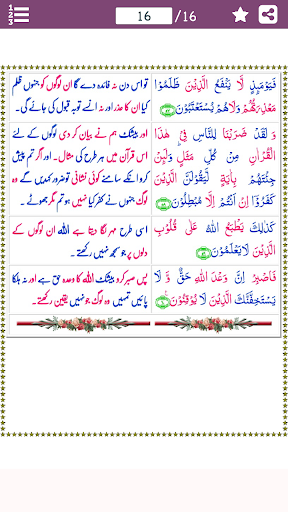 1 2 3
16 /16
فَيَوْمَىِٕذٍ لَّا يَنْفَعُ الَّذِيْنَ ظَلَمُوْا
مَعْذِرَتُهُمْ وَلَا هُمْ يُسْتَعْتَبُوْنَ
تو اس دن نہ فائدہ دے گا ان لوگوں کو جنہوں ظلم
کیا ان کا عذر اور نہ انسے توبہ قبول کی جائے گی۔
وَ لَقَدْ ضَرَبْنَا لِلنَّاسِ فِيْ هٰذَا
الْقُرْاٰنِ مِنْ كُلِّ مَثَلٍ وَلَىِٕنْ
جِئْتَهُمْ بِاٰيَةٍ لَّيَقُوْلَنَّ الَّذِيْنَ
كَفَرُوْٓا اِنْ اَنْتُمْ اِلَّا مُبْطِلُوْنَ
اور بیشک ہم نے بیان کر دی لوگوں کے لئے
اس قرآن میں ہر طرح کی مثال۔ اور اگر تم پیش
کرو انکے سامنے کوئی نشانی تو ضرور کہیں گے وہ
لوگ جنہوں نے کفر کیا نہیں ہو تم مگر جھوٹے۔
كَذٰلِكَ يَطْبَعُ اللّٰهُ عَلٰى قُلُوْبِ
الَّذِيْنَ لَا يَعْلَمُوْنَ
اسی طرح مہر لگا دیتا ہے اللہ ان لوگوں کے
دلوں پر جو سمجھ نہیں رکھتے۔
فَاصْبِرْ اِنَّ وَعْدَ اللّٰهِ حَقٌّ وَّ لَا
يَسْتَخِفَّنَّكَ الَّذِيْنَ لَا يُوْقِنُوْنَ
پس صبر کرو بیشک اللہ کا وعدہ حق ہے اور نہ ہلکا
پائیں تمہیں وہ لوگ جو نہیں یقین رکھتے۔